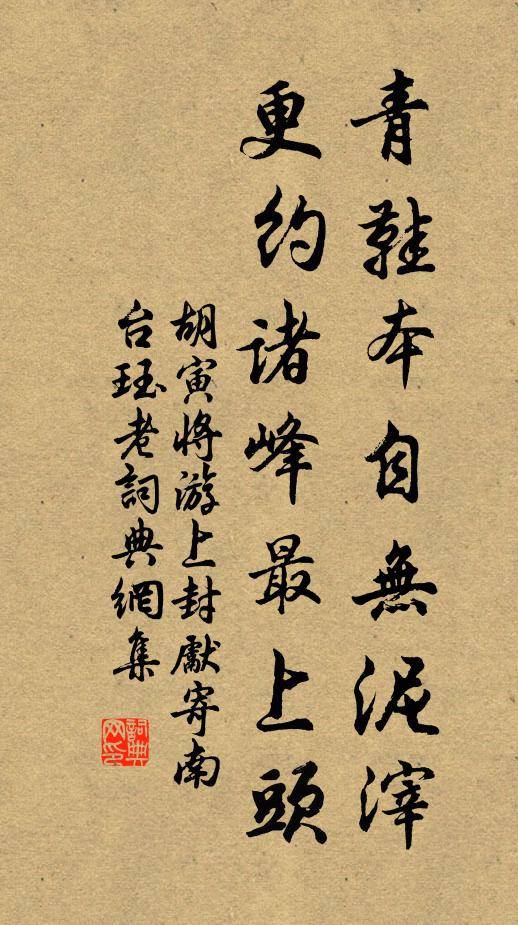 青鞋本自無泥滓
更約諸峰最上頭
胡寅將游上封獻寄南
台珏老詞典網集
詞典網印